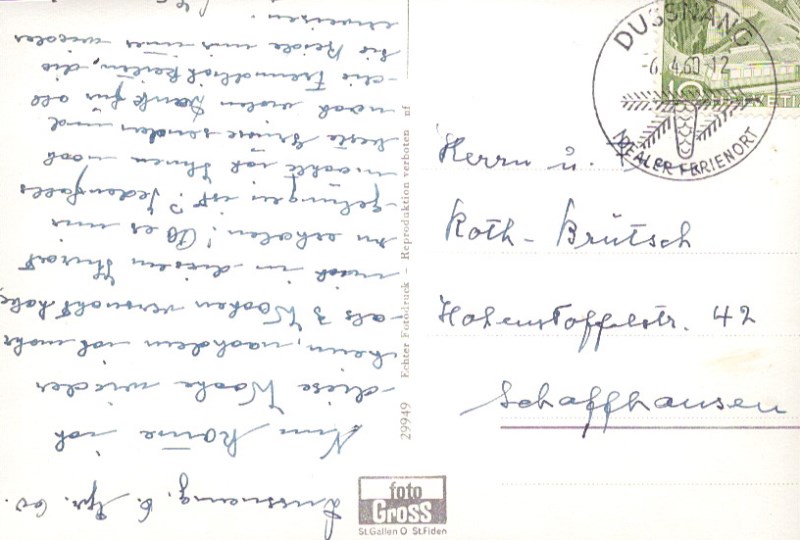 Dussnang, 6. Apr. 60.
Nun komme ich
diese Woche wieder
heim, nachdem ich mehr
als 3 Wochen versucht habe,
mich in diesem Kurort
zu erholen! Ob es mir
gelungen ist? Jedenfalls
möchte ich Ihnen noch
beste Grüsse senden und
noch vielen Dank für all
die Freundlichkeiten, die
Sie Beide mir immer wieder
erweisen.
29949 Echter Fotodruck – Reproduktion verboten nf
foto
GROSS
St.Gallen O St.Fiden
DUSSNANG
-6.4.60-12
IDEALER FERIENORT
10
HELVETIA
Herrn u.
Roth-Brütsch
Hohenstoffelstr. 42
Schaffhausen